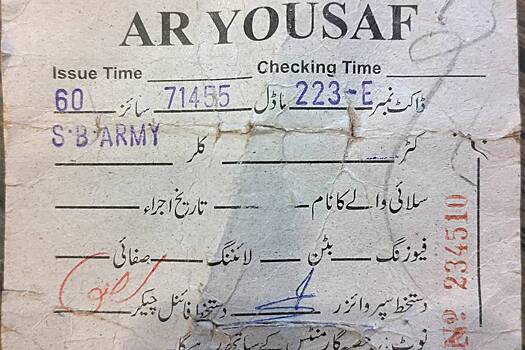 AR YOUSAF
Issue Time ________ Checking Time ________
ڈاکٹ نمبر 223-E ماڈل 71455 سائز 60
کٹر ________ کلر S·B ARMY
سلائی والے کا نام ________ تاریخ اجراء ________
فیوزنگ ____ بٹن ____ لائننگ ____ صفائی ____
دستخط سپروائزر ________ دستخط فائنل چیکر ________
نوٹ: کے ساتھ رہے گا
No 234510